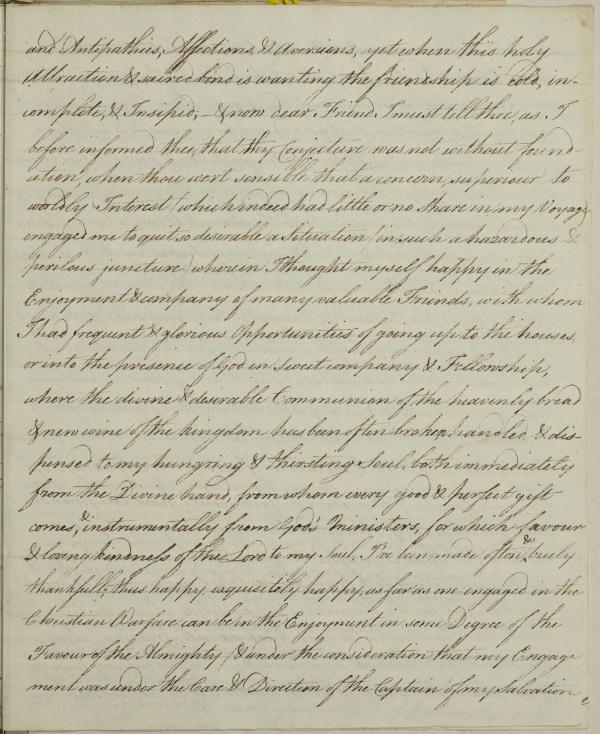 and Antipathies, Affections, & aversions, yet when this holy
attraction & sacred bind is wanting the friendship is cold, in-
complete, & Insipid; - & now dear Friend I must tell thee, as I
before informed thee, that thy Conjecture was not without found-
ation, when thou wert sensible that a concern, superiour to
worldly Interest (which indeed had little or no share in my Voyage
engaged me to quit so desirable a Situation (in such a hazardous &
perilous juncture) wherein I thought myself happy in the
Enjoyment & company of many valuable Friends, with whom
I had frequent & glorious Opportunities of going up to the houses,
or into the presence of God in sweet company & Fellowship,
where the divine & desirable Communion of the heavenly bread
& new wine of the kingdom has been often broken, handled, & dis-
pensed to my hungring & thirsting Soul, both immediately
from the Divine hand, from whom every good & perfect gift
comes, & instrumentally from God's Ministers, for which favour
& loving kindness of the Lord to my Soul, I've been made often & truly
thankfull, thus happy, exquisitely happy, as far as one engaged in the
Christian Warfare can be in the Enjoyment in some Degree of the
Favour of the Almighty (& under the consideration that my Engage
ment was under the Care & Direction of the Captain of my Salvation